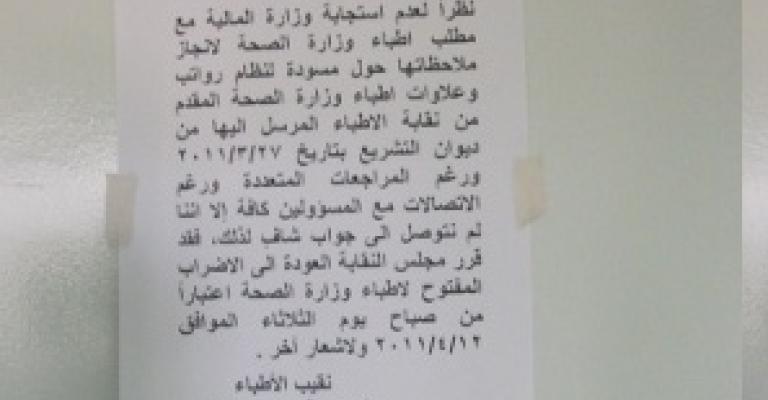 نظراً لعدم استجابة وزارة المالية مع
مطلب اطباء وزارة الصحة لانجاز
ملاحظاتها حول مسودة لنظام رواتب
وعلاوات اطباء وزارة الصحة المقدم
من نقابة الاطباء المرسل اليها من
ديوان التشريع بتاريخ ٢٠١١/٣/٢٧
ورغم المراجعات المتعددة ورغم
الاتصالات مع المسؤولين كافة إلا اننا
لم نتوصل الى جواب شاف لذلك، فقد
قرر مجلس النقابة العودة الى الاضراب
المفتوح لاطباء وزارة الصحة اعتباراً
من صباح يوم الثلاثاء الموافق
٢٠١١/٤/١٢ ولاشعار آخر .
نقيب الأطباء